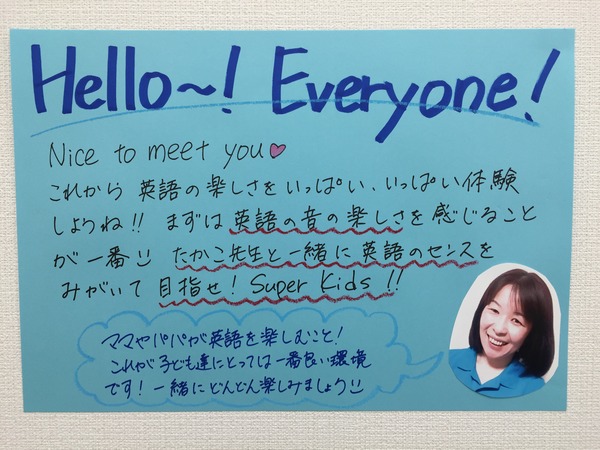 Hello~! Everyone!
Nice to meet you♥
これから 英語の楽しさをいっぱい、いっぱい体験
しようね!! まずは英語の音の楽しさを感じること
が一番☺ たかこ先生と一緒に英語のセンスを
みがいて 目指せ! Super Kids !!
ママやパパが英語を楽しむこと!
これが子ども達にとっては一番良い環境
です! 一緒にどんどん楽しみましょう☺